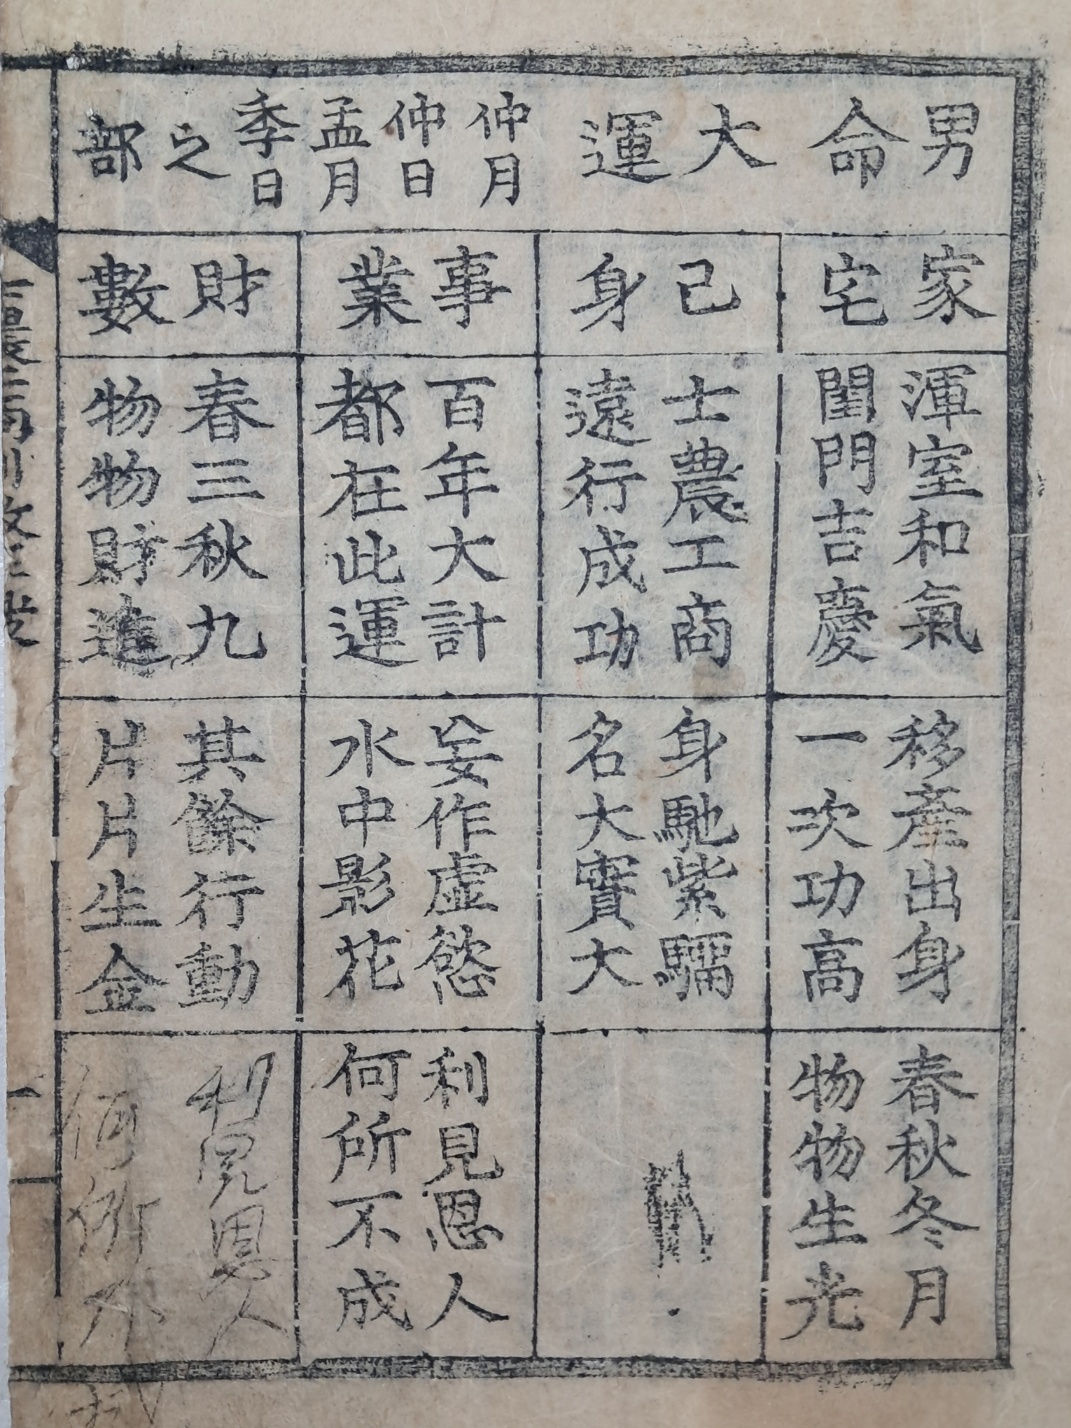 男命
大運
仲月
仲日
孟月
季日
之部
家宅
渾室和氣
閨門吉慶
移產出身
一次功高
春秋冬月
物物生光
己身
士農工商
遠行成功
身馳紫騮
名大實大
事業
百年大計
都在此運
妄作虛慾
水中影花
利見恩人
何所不成
財數
春三秋九
物物財進
其餘行動
片片生金
利見恩人
何所不成